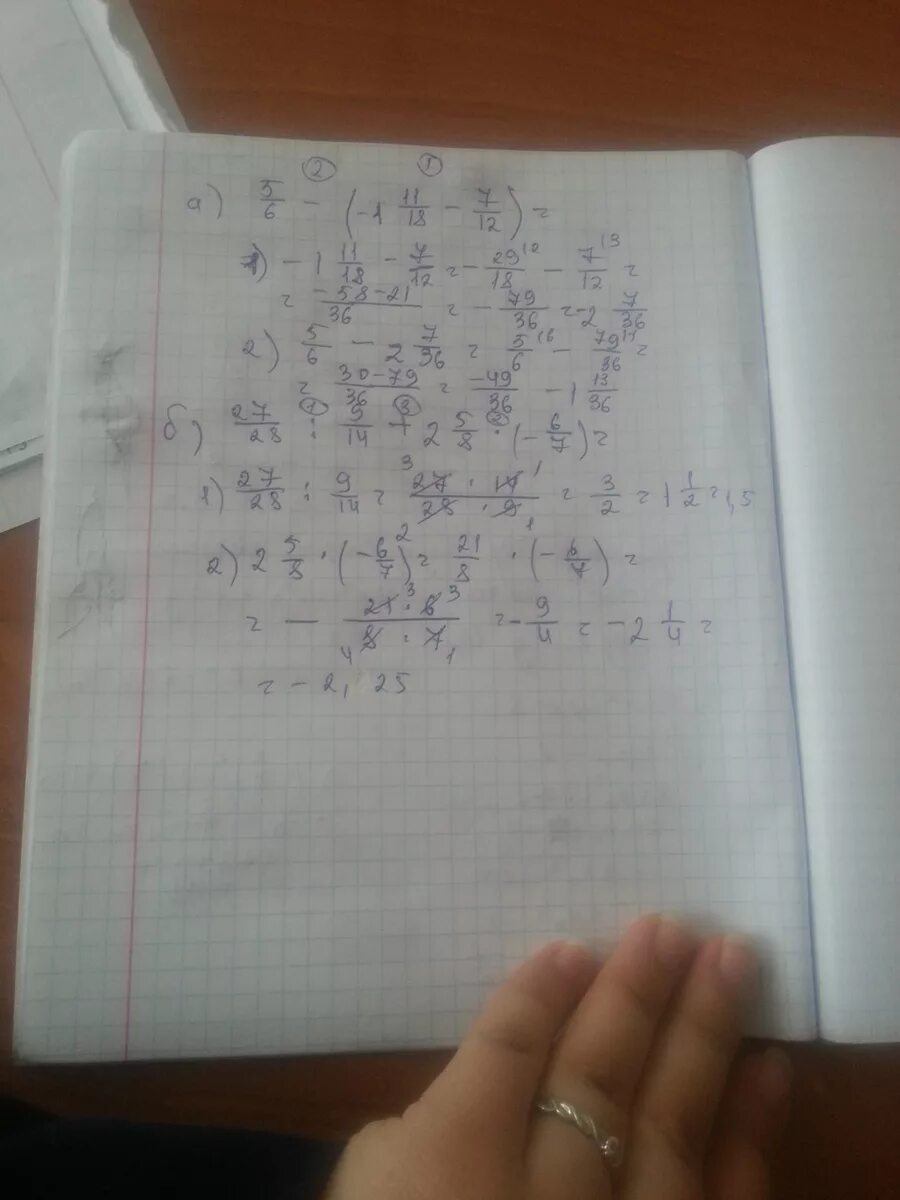 ② ①
а) 5/6 - (-1 11/18 - 7/12) =
1) -1 11/18 - 7/12 = - 29/18 |2 - 7/12 |3 =
= -58-21/36 = - 79/36 = -2 7/36
2) 5/6 - 2 7/36 = 5/6 |6 - 79/36 |1 =
= 30-79/36 = -49/36 - 1 13/36
① ③ ②
б) 27/28 : 9/14 + 2 5/8 · (- 6/7) =
1) 27/28 : 9/14 = 27 · 14/28 · 9 = 3/2 = 1 1/2 = 1,5
2) 2 5/8 · (- 6/7) = 21/8 · (- 6/7) =
= - 21 · 6/8 · 7 = - 9/4 = -2 1/4 =
= -2,25